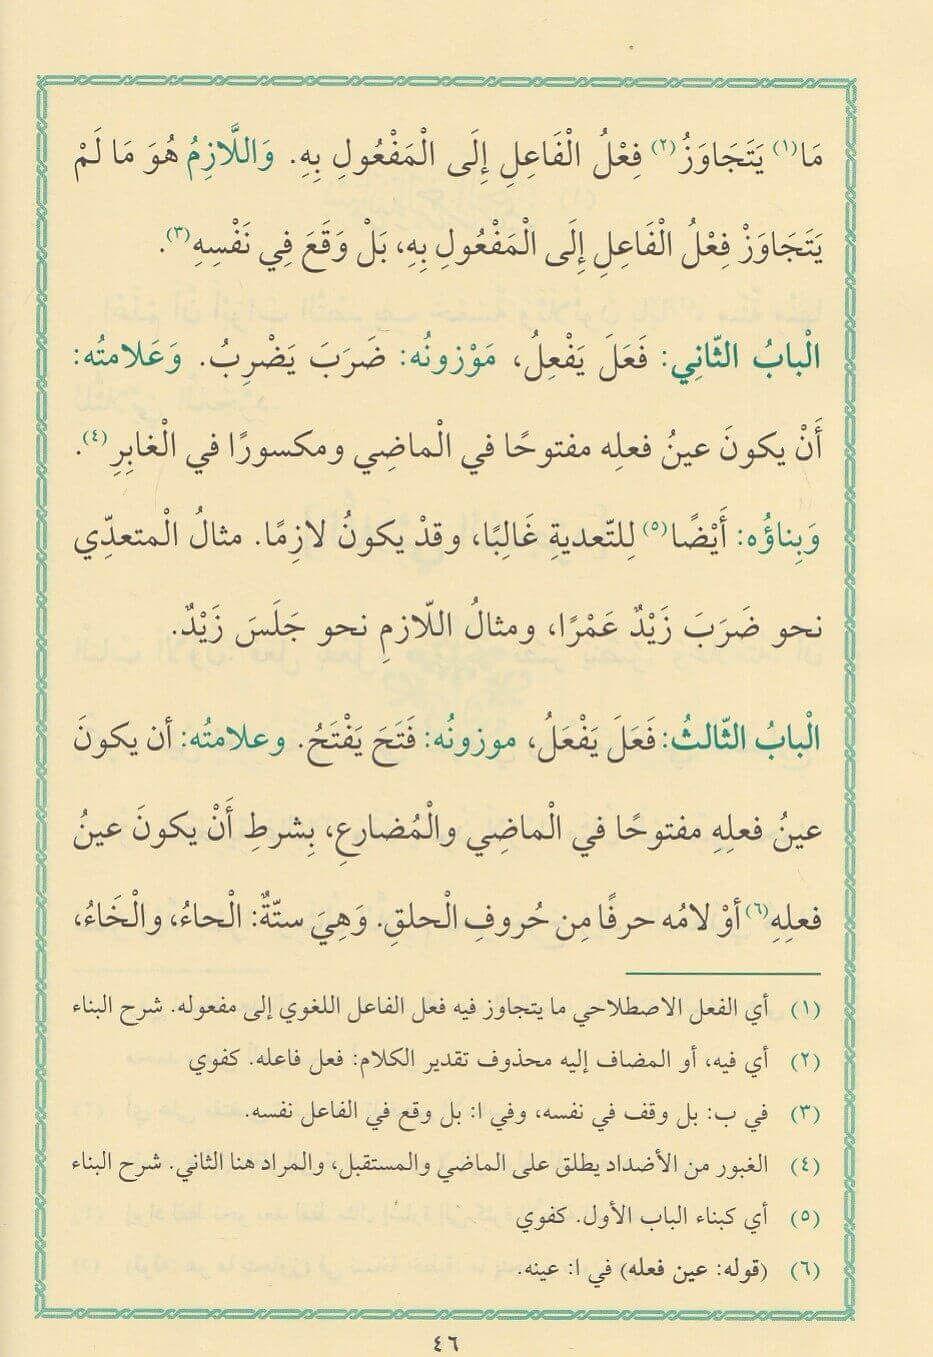 مَا(١) يَتَجَاوَزُ(٢) فِعْلُ الْفَاعِلِ إِلَى الْمَفْعُولِ بِهِ. وَاللَّازِمُ هُوَ مَا لَمْ
يَتَجَاوَزْ فِعْلُ الْفَاعِلِ إِلَى الْمَفْعُولِ بِهِ، بَلْ وَقَعَ فِي نَفْسِهِ(٣).
الْبابُ الثّانِي: فَعَلَ يَفْعِلُ، مَوْزونُه: ضَرَبَ يَضْرِبُ. وَعَلامتُه:
أَنْ يكونَ عينُ فعلِه مفتوحًا في الْماضِي ومكسورًا في الْغابِرِ(٤).
وَبِناؤُه: أَيْضًا(٥) لِلتّعديةِ غَالِبًا، وقدْ يكونُ لازِمًا. مثالُ الْمتعدِّي
نحو ضَرَبَ زَيْدٌ عَمْرًا، ومثالُ اللّازمِ نحو جَلَسَ زَيْدٌ.
الْبابُ الثّالثُ: فَعَلَ يَفْعَلُ، موزونُه: فَتَحَ يَفْتَحُ. وعلامتُه: أن يكونَ
عينُ فعلِهِ مفتوحًا في الْماضِي والْمُضارعِ، بِشرطِ أَنْ يكونَ عينُ
فعلِهِ(٦) أوْ لامُه حرفًا مِن حُروفِ الْحلقِ. وَهِيَ ستّةٌ: الْحاءُ، والْخَاءُ،
(١) أي الفعل الاصطلاحي ما يتجاوز فيه فعل الفاعل اللغوي إلى مفعوله. شرح البناء
(٢) أي فيه، أو المضاف إليه محذوف تقدير الكلام: فعل فاعله. كفوي
(٣) في ب: بل وقف في نفسه، وفي ا: بل وقع في الفاعل نفسه.
(٤) الغبور من الأضداد يطلق على الماضي والمستقبل، والمراد هنا الثاني. شرح البناء
(٥) أي كبناء الباب الأول. كفوي
(٦) (قوله: عين فعله) في ا: عينه.
٤٦